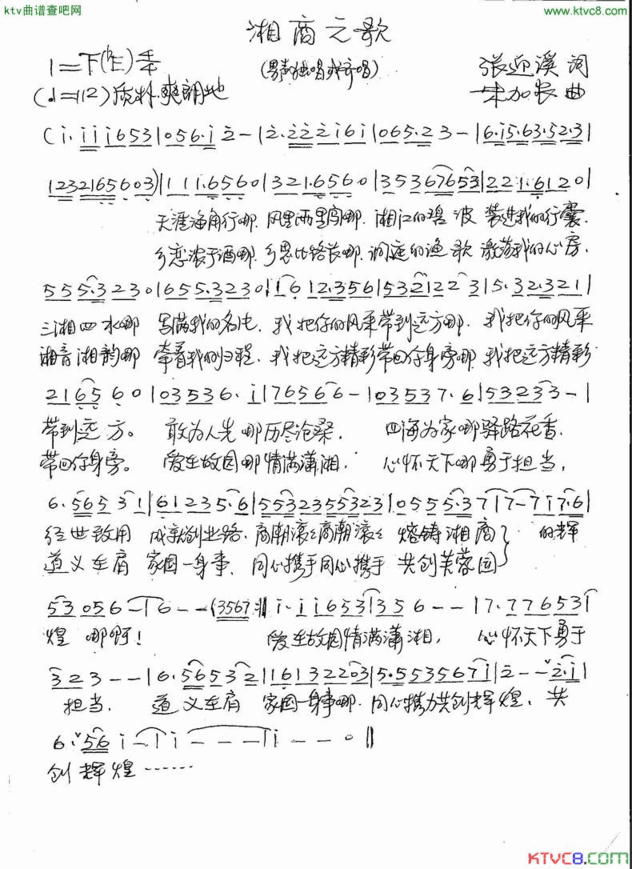 ktv曲谱查吧网
www.ktvc8.com
湘商之歌
(男声独唱或齐唱)
张迎溪 词
宋加农 曲
(♩=112) 质朴.爽朗地
(i.iii653|056.i2-|2.222i6i|065.23-|6.i5.63.52.3|
1232165603)|111.6560|321.6560|35367653|221.6120|
天涯海角行哪.风里雨里闯哪.湘江的碧波 装进我的行囊.
乡恋浓于酒哪.乡思比路长哪.洞庭的渔歌 激荡我的心房.
555.3230|1655.3230|1612.356|5321223|5.32.321|
三湘四水哪 写满我的名片.我把你的风采带到远方哪.我把你的风采
湘音湘韵哪 牵着我的归程.我把远方精彩带回你身旁哪.我把远方精彩
216560|03536.i|76566-|03537.6|53233-|
带到远方。 敢为人先哪历尽沧桑. 四海为家哪驿路花香.
带回你身旁。 爱在故园哪情满潇湘. 心怀天下哪勇于担当,
6.56531|61235.6|5532355323|0555.37|7-7i7.6|
经世致用 成就创业路.商潮滚滚商潮滚滚 熔铸湘商 的辉
道义在肩 家国一身事.同心携手同心携手 共创芙蓉国
53056-|6--(3567:||i.ii653|356--|7.77653|
煌 哪啊! 爱在故园情满潇湘, 心怀天下勇于
323--|6.56532|16132203|5.553567i|2--2.i|
担当. 道义在肩 家国一身事哪.同心携力共创辉煌、共
6.56i-|i---|i--0||
创辉煌……
KTVC8.COM